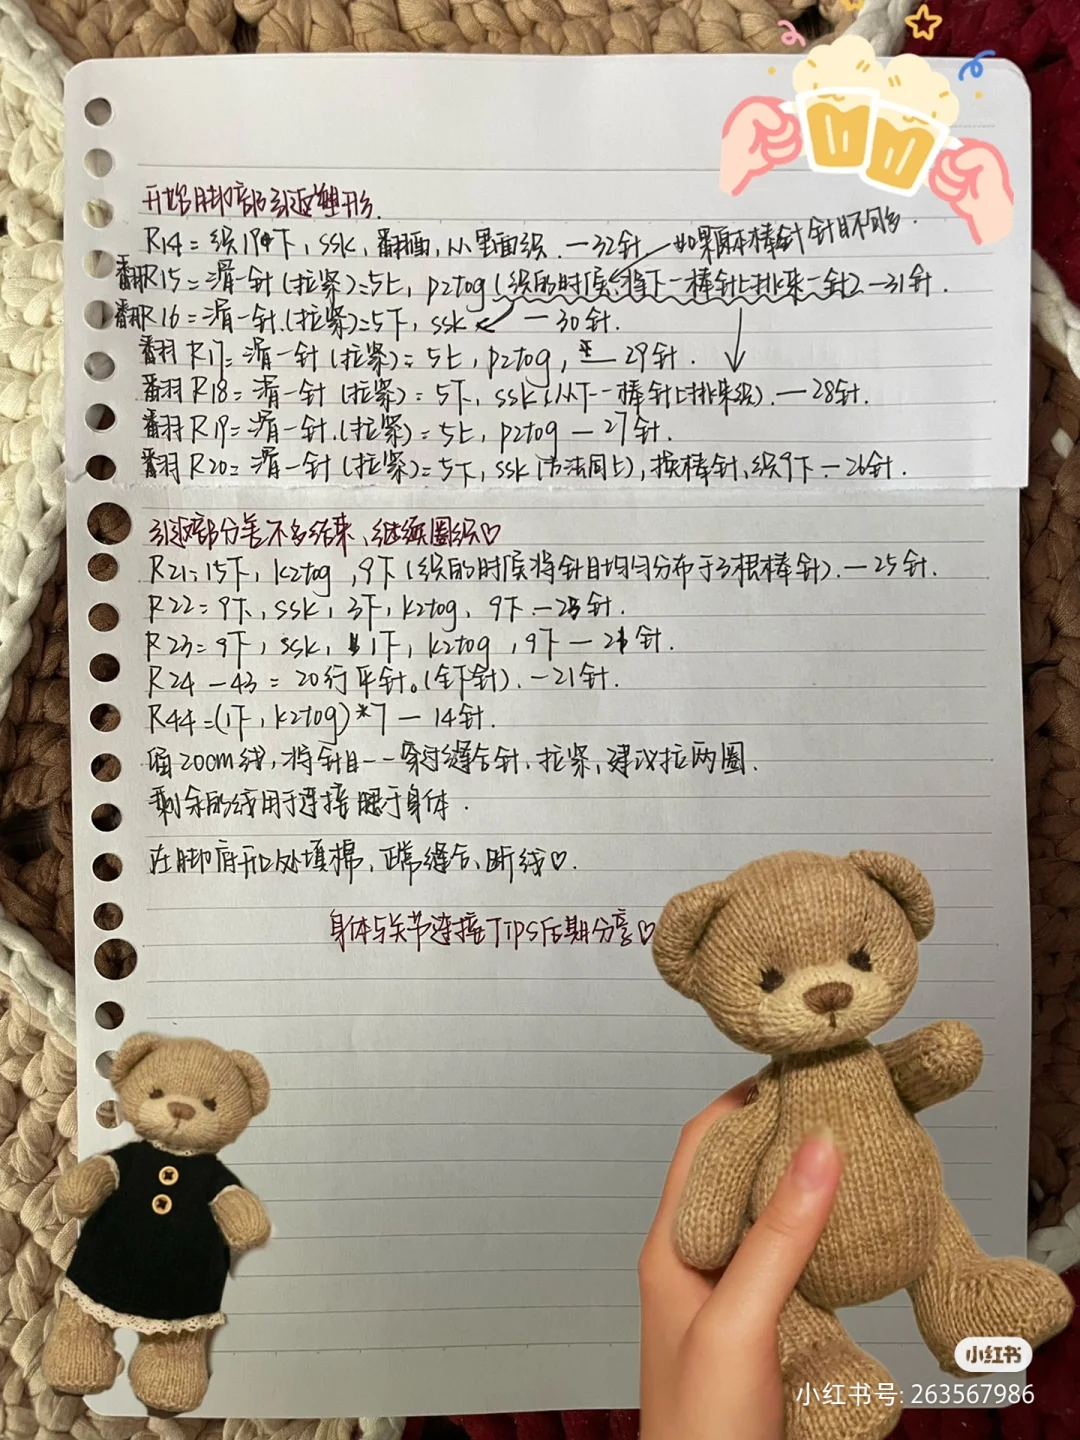 开始脚部引返塑形.
R14=织19下,ssk,翻面,从里面织.—32针—如果原本棒针针目不够多.
翻R15=滑一针(拉紧)=5上,p2tog(织的时候将下一棒针上挑来一针)—31针.
翻R16=滑一针.(拉紧)=5下,ssk —30针.
翻R17=滑一针(拉紧)=5上,p2tog,—29针.
翻R18=滑一针(拉紧)=5下,ssk(从下一棒针上挑来织).—28针.
翻R19=滑一针.(拉紧)=5上,p2tog—27针.
翻R20=滑一针(拉紧)=5下,ssk(方法同上),换棒针,织9下—26针.
引返部分差不多结束,继续圈织♡
R21=15下,k2tog,9下(织的时候将针目均匀分布于3根棒针).—25针.
R22=9下,ssk,3下,k2tog,9下—23针.
R23=9下,ssk,1下,k2tog,9下—21针.
R24—43=20行平针。(全下针).—21针.
R44=(1下,k2tog)*7—14针.
留20cm线,将针目一一穿过缝合针,拉紧,建议拉两圈.
剩余的线用于连接腿于身体.
在脚底开口处填棉,正常缝合,断线♡.
身体与关节连接TIPS后期分享♡
小红书
小红书号: 263567986